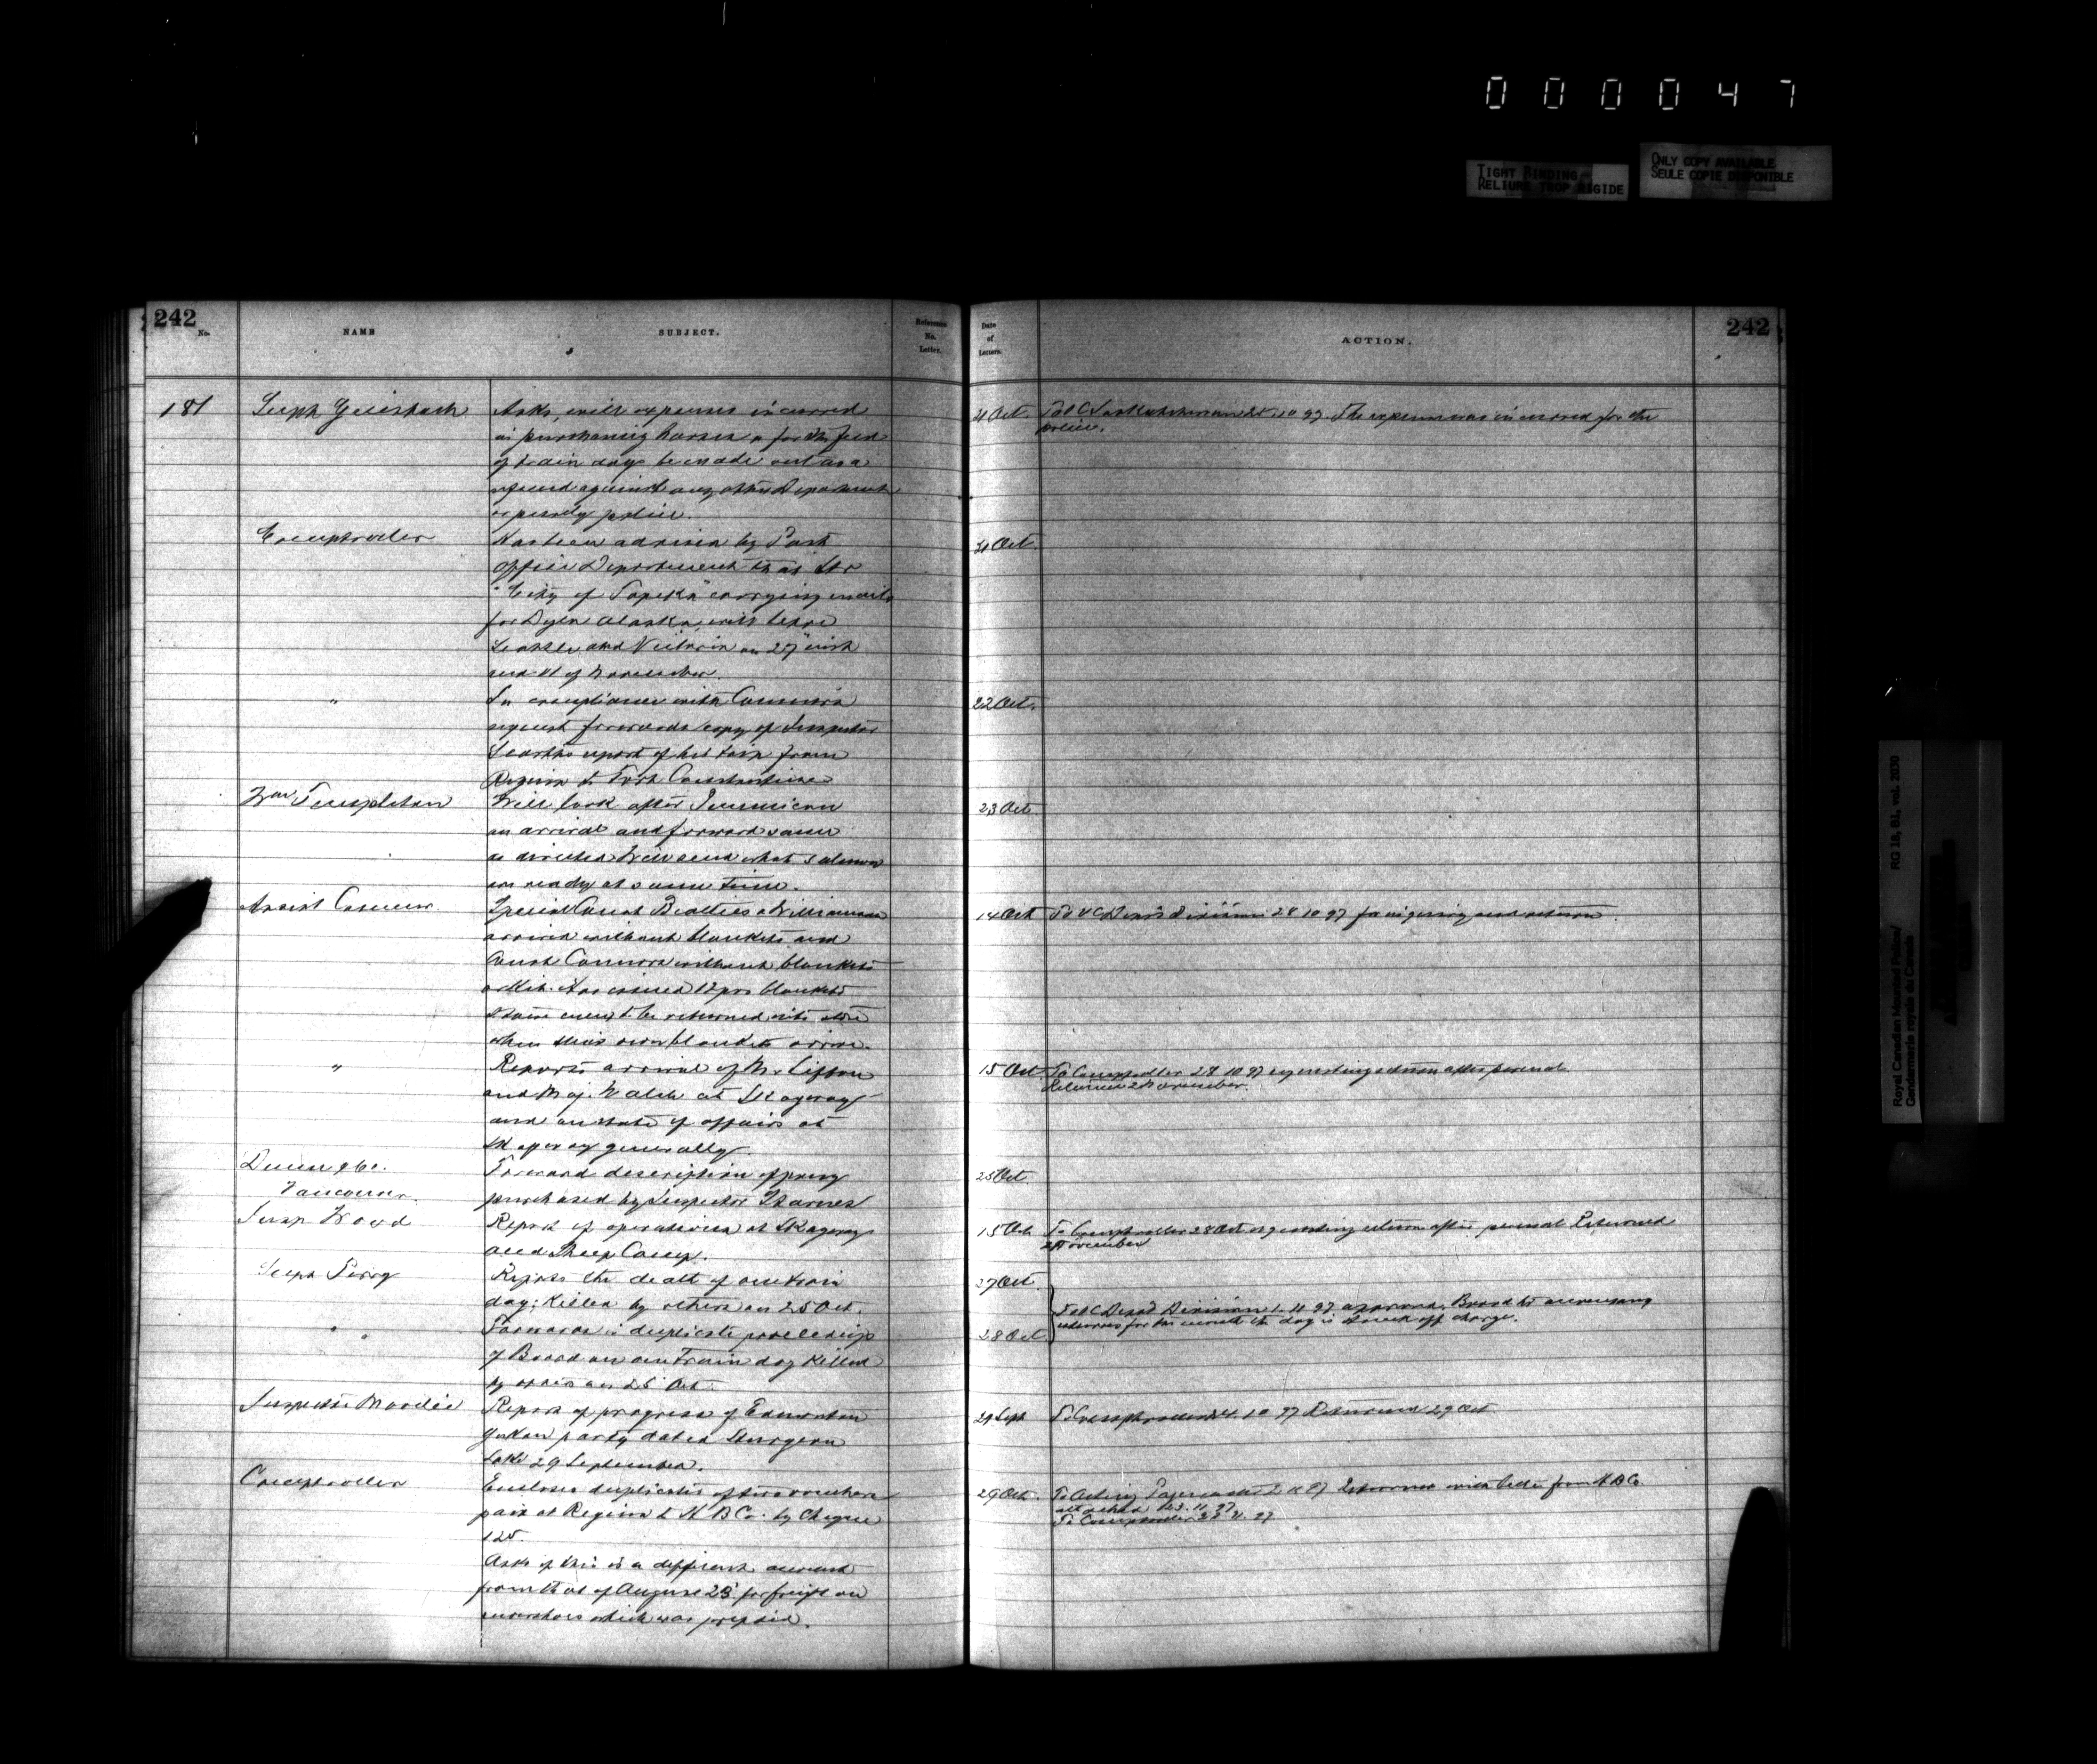 0 0 0 0 4 7
TIGHT BINDING
RELIURE TROP RIGIDE
ONLY COPY AVAILABLE
SEULE COPIE DISPONIBLE
242
No.
NAME
SUBJECT.
Reference
No.
Letter.
Date
of
Letters.
ACTION.
242
181
Supt Griesbach
Asks, will expenses incurred
in purchasing horses & for the feed
of train dogs be made out as a
refund against any other Department
or purely police.
21 Oct
To O C Saskatchewan 25.10 97. The expense was incurred for the
police.
Comptroller
Has been advised by Post
Office Department that Str
"City of Topeka" carrying mails
for Dyea Alaska, will leave
Seattle and Victoria on 27 inst
and 11 of November.
21 Oct
"
In compliance with Commrs
request forwards copy of Inspector
Scarths report of his trip from
Regina to Fort Constantine
22 Oct.
Wm Templeton
Will look after Pemmican
on arrival and forward same
as directed Will send what salmon
on ready at same time.
23 Oct
Assist Commr.
Special Const Beatties & Williamson
arrived without blankets and
Const Connors without blankets
& Kit. Has issued 12 prs blankets
same to be returned into store
when their own blankets arrive.
14 Oct
To O C Depot Division 28 10 97 for inquiry and return.
"
Reports arrival of Mr Sifton
and Maj. Walsh at Skagway
and on state of affairs at
Skagway generally.
15 Oct
To Comptroller 28 10 97 requesting return after perusal.
Returned 2 November.
Dunn & Co.
Vancouver.
Forward description of pony
purchased by Inspector Starnes
25 Oct
Insp Wood
Report of operations at Skagway
and Sheep Camp.
15 Oct
To Comptroller 28 Oct requesting return after perusal Returned
2 November
Supt Perry
Reports the death of one train
dog; Killed by others on 25 Oct.
27 Oct
To O C Depot Division 1. 11 97 approved. Board to accompany
returns for the month the dog is struck off charge.
" "
Forwards in duplicate proceedings
of Board on one train dog killed
by others on 25 Oct.
28 Oct
Inspector Moodie
Report of progress of Edmonton
Yukon party dated Sturgeon
Lake 29 September.
29 Sept
To Comptroller 24. 10 97 Returned 29 Oct
Comptroller
Encloses duplicates of two vouchers
paid at Regina to H B Co. by Cheque
125.
Asks if this is a different account
from that of August 23 for freight on
snowshoes which was prepaid.
29 Oct.
To Acting Paymaster 2 11 97 Returned with letter from H B Co.
attached 23. 11. 97
To Comptroller 23 11. 97
Royal Canadian Mounted Police/
Gendarmerie royale du Canada
RG 18, B1, vol. 2030